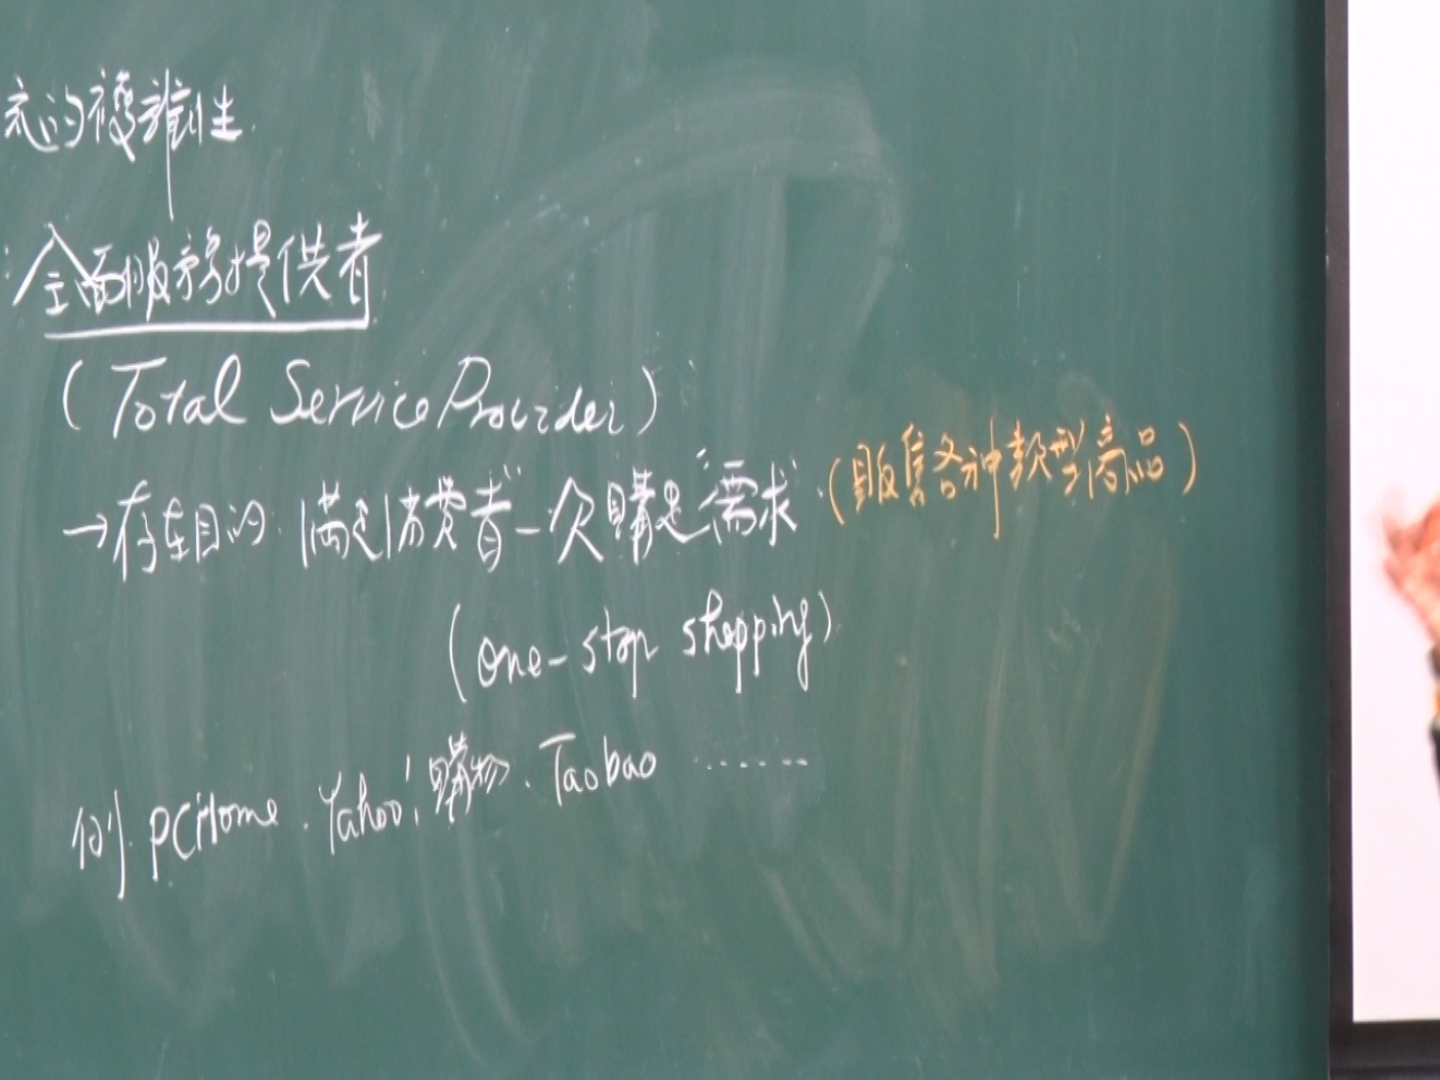 式的複雜性
全面服務提供者
(Total Service Provider)
→存在目的:滿足消費者"一次購足"需求.(販售各种款型商品)
(one-stop shopping)
例. PCHome. Yahoo!購物. Taobao .......